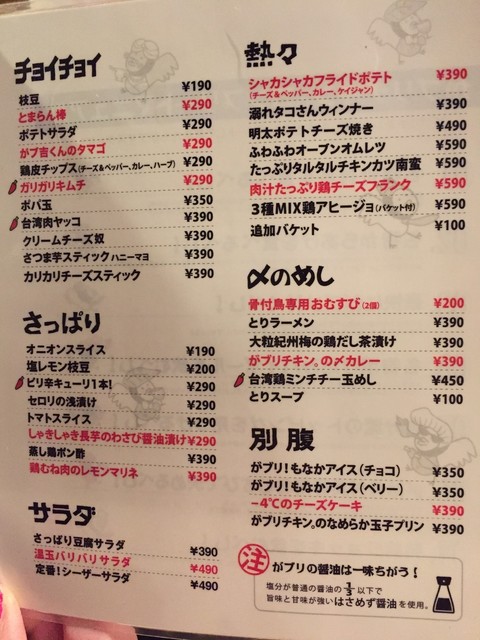 チョイチョイ
枝豆 ¥190
とまらん棒 ¥290
ポテトサラダ ¥290
がブ吉くんのタマゴ ¥290
鶏皮チップス(チーズ&ペッパー、カレー、ハーブ) ¥290
ガリガリキムチ ¥290
ポパ玉 ¥350
台湾肉ヤッコ ¥390
クリームチーズ奴 ¥390
さつま芋スティックハニーマヨ ¥390
カリカリチーズスティック ¥390
さっぱり
オニオンスライス ¥190
塩レモン枝豆 ¥200
ピリ辛キューリ1本! ¥290
セロリの浅漬け ¥290
トマトスライス ¥290
しゃきしゃき長芋のわさび醤油漬け ¥290
蒸し鶏ポン酢 ¥390
鶏むね肉のレモンマリネ ¥390
サラダ
さっぱり豆腐サラダ ¥390
温玉バリバリサラダ ¥490
定番!シーザーサラダ ¥490
熱々
シャカシャカフライドポテト ¥390
(チーズ&ペッパー、カレー、ケイジャン)
溺れタコさんウィンナー ¥390
明太ポテトチーズ焼き ¥490
ふわふわオーブンオムレツ ¥590
たっぷりタルタルチキンカツ南蛮 ¥590
肉汁たっぷり鶏チーズフランク ¥590
3種MIX鶏アヒージョ(バケット付) ¥590
追加バケット ¥100
〆のめし
骨付鳥専用おむすび(2個) ¥200
とりラーメン ¥390
大粒紀州梅の鶏だし茶漬け ¥390
がブリチキン。の〆カレー ¥390
台湾鶏ミンチチー玉めし ¥450
とりスープ ¥100
別腹
がブリ!もなかアイス(チョコ) ¥350
がブリ!もなかアイス(ベリー) ¥350
-4℃のチーズケーキ ¥390
がブリチキン。のなめらか玉子プリン ¥390
注 がブリの醤油は一味ちがう!
塩分が普通の醤油の1/3以下で
旨味と甘味が強いはさめず醤油を使用。